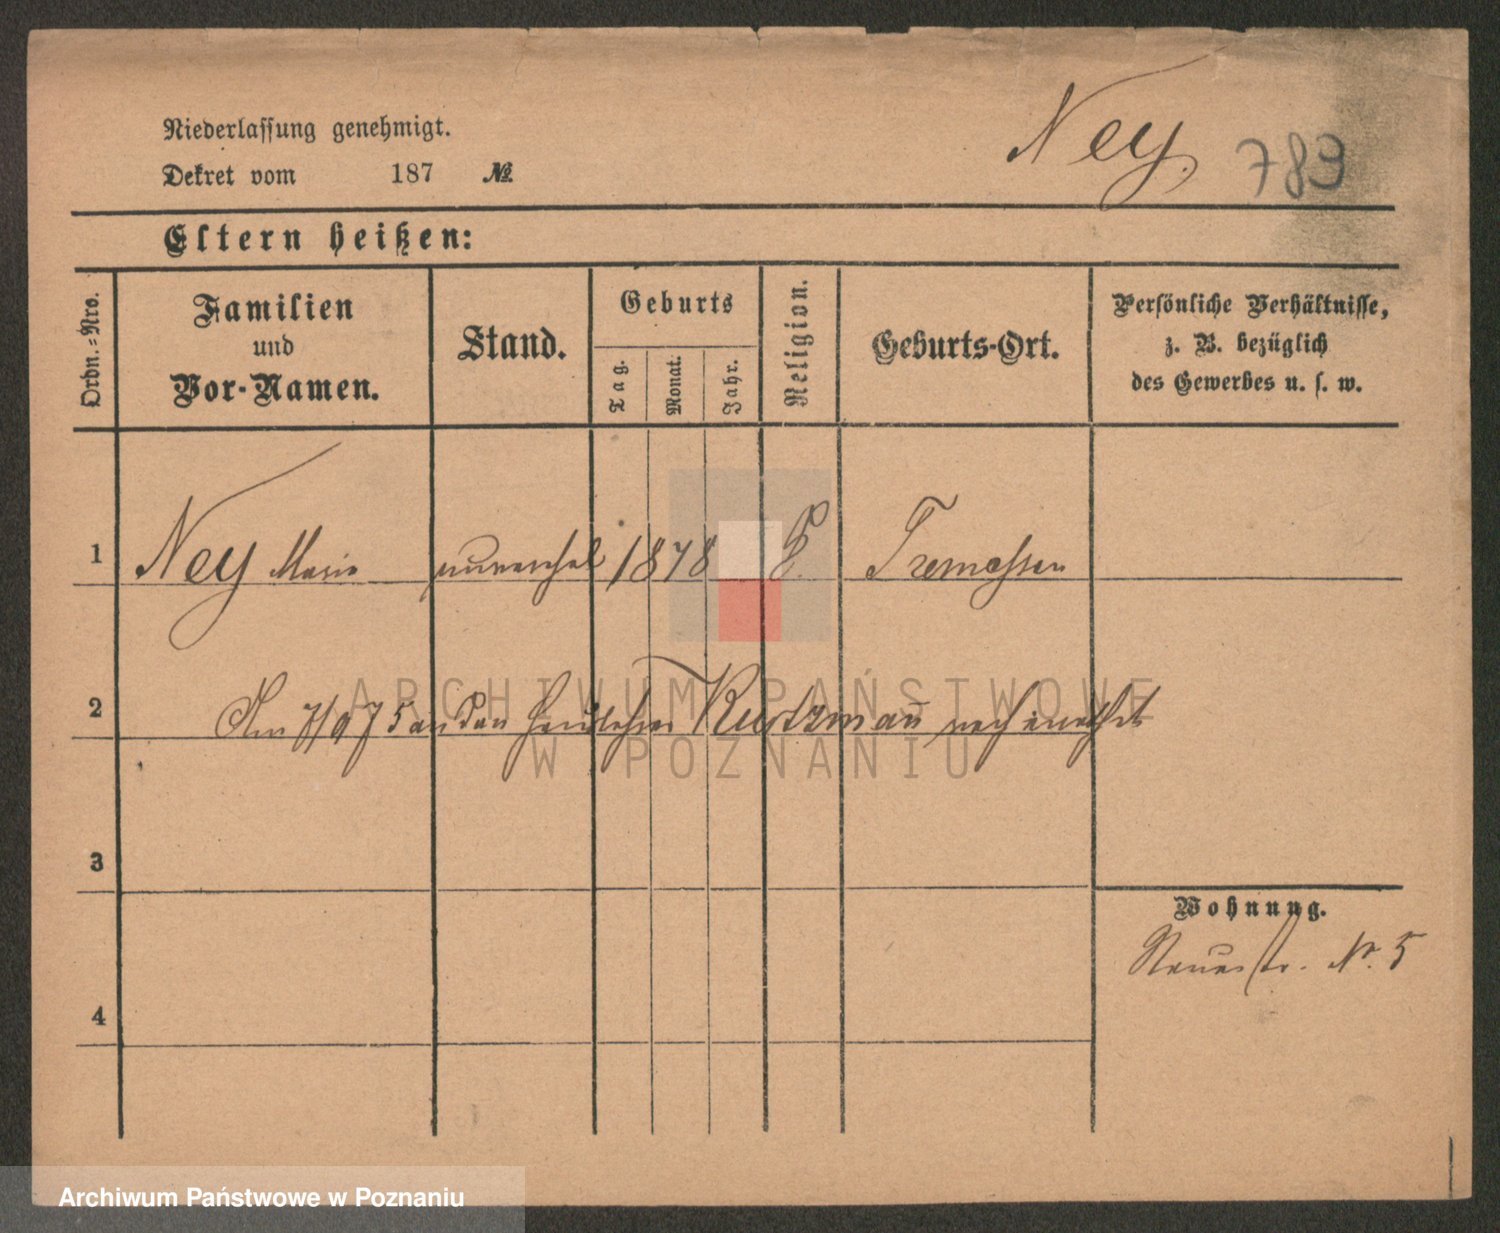 Niederlassung genehmigt.
Dekret vom 187 №
Ney. 783
Eltern heißen:
Ordn.-Nro.
Familien
und
Vor-Namen.
Stand.
Geburts
Tag.
Monat.
Jahr.
Religion.
Geburts-Ort.
Persönliche Verhältnisse,
z. B. bezüglich
des Gewerbes u. s. w.
1 Ney Marie unverehel 1878 Tremessen
2 Am 7/9 75 an den Kurtzmann verheirathet
3
4
Wohnung.
Neuestr. Nr. 5
ARCHIWUM PAŃSTWOWE
W POZNANIU
Archiwum Państwowe w Poznaniu